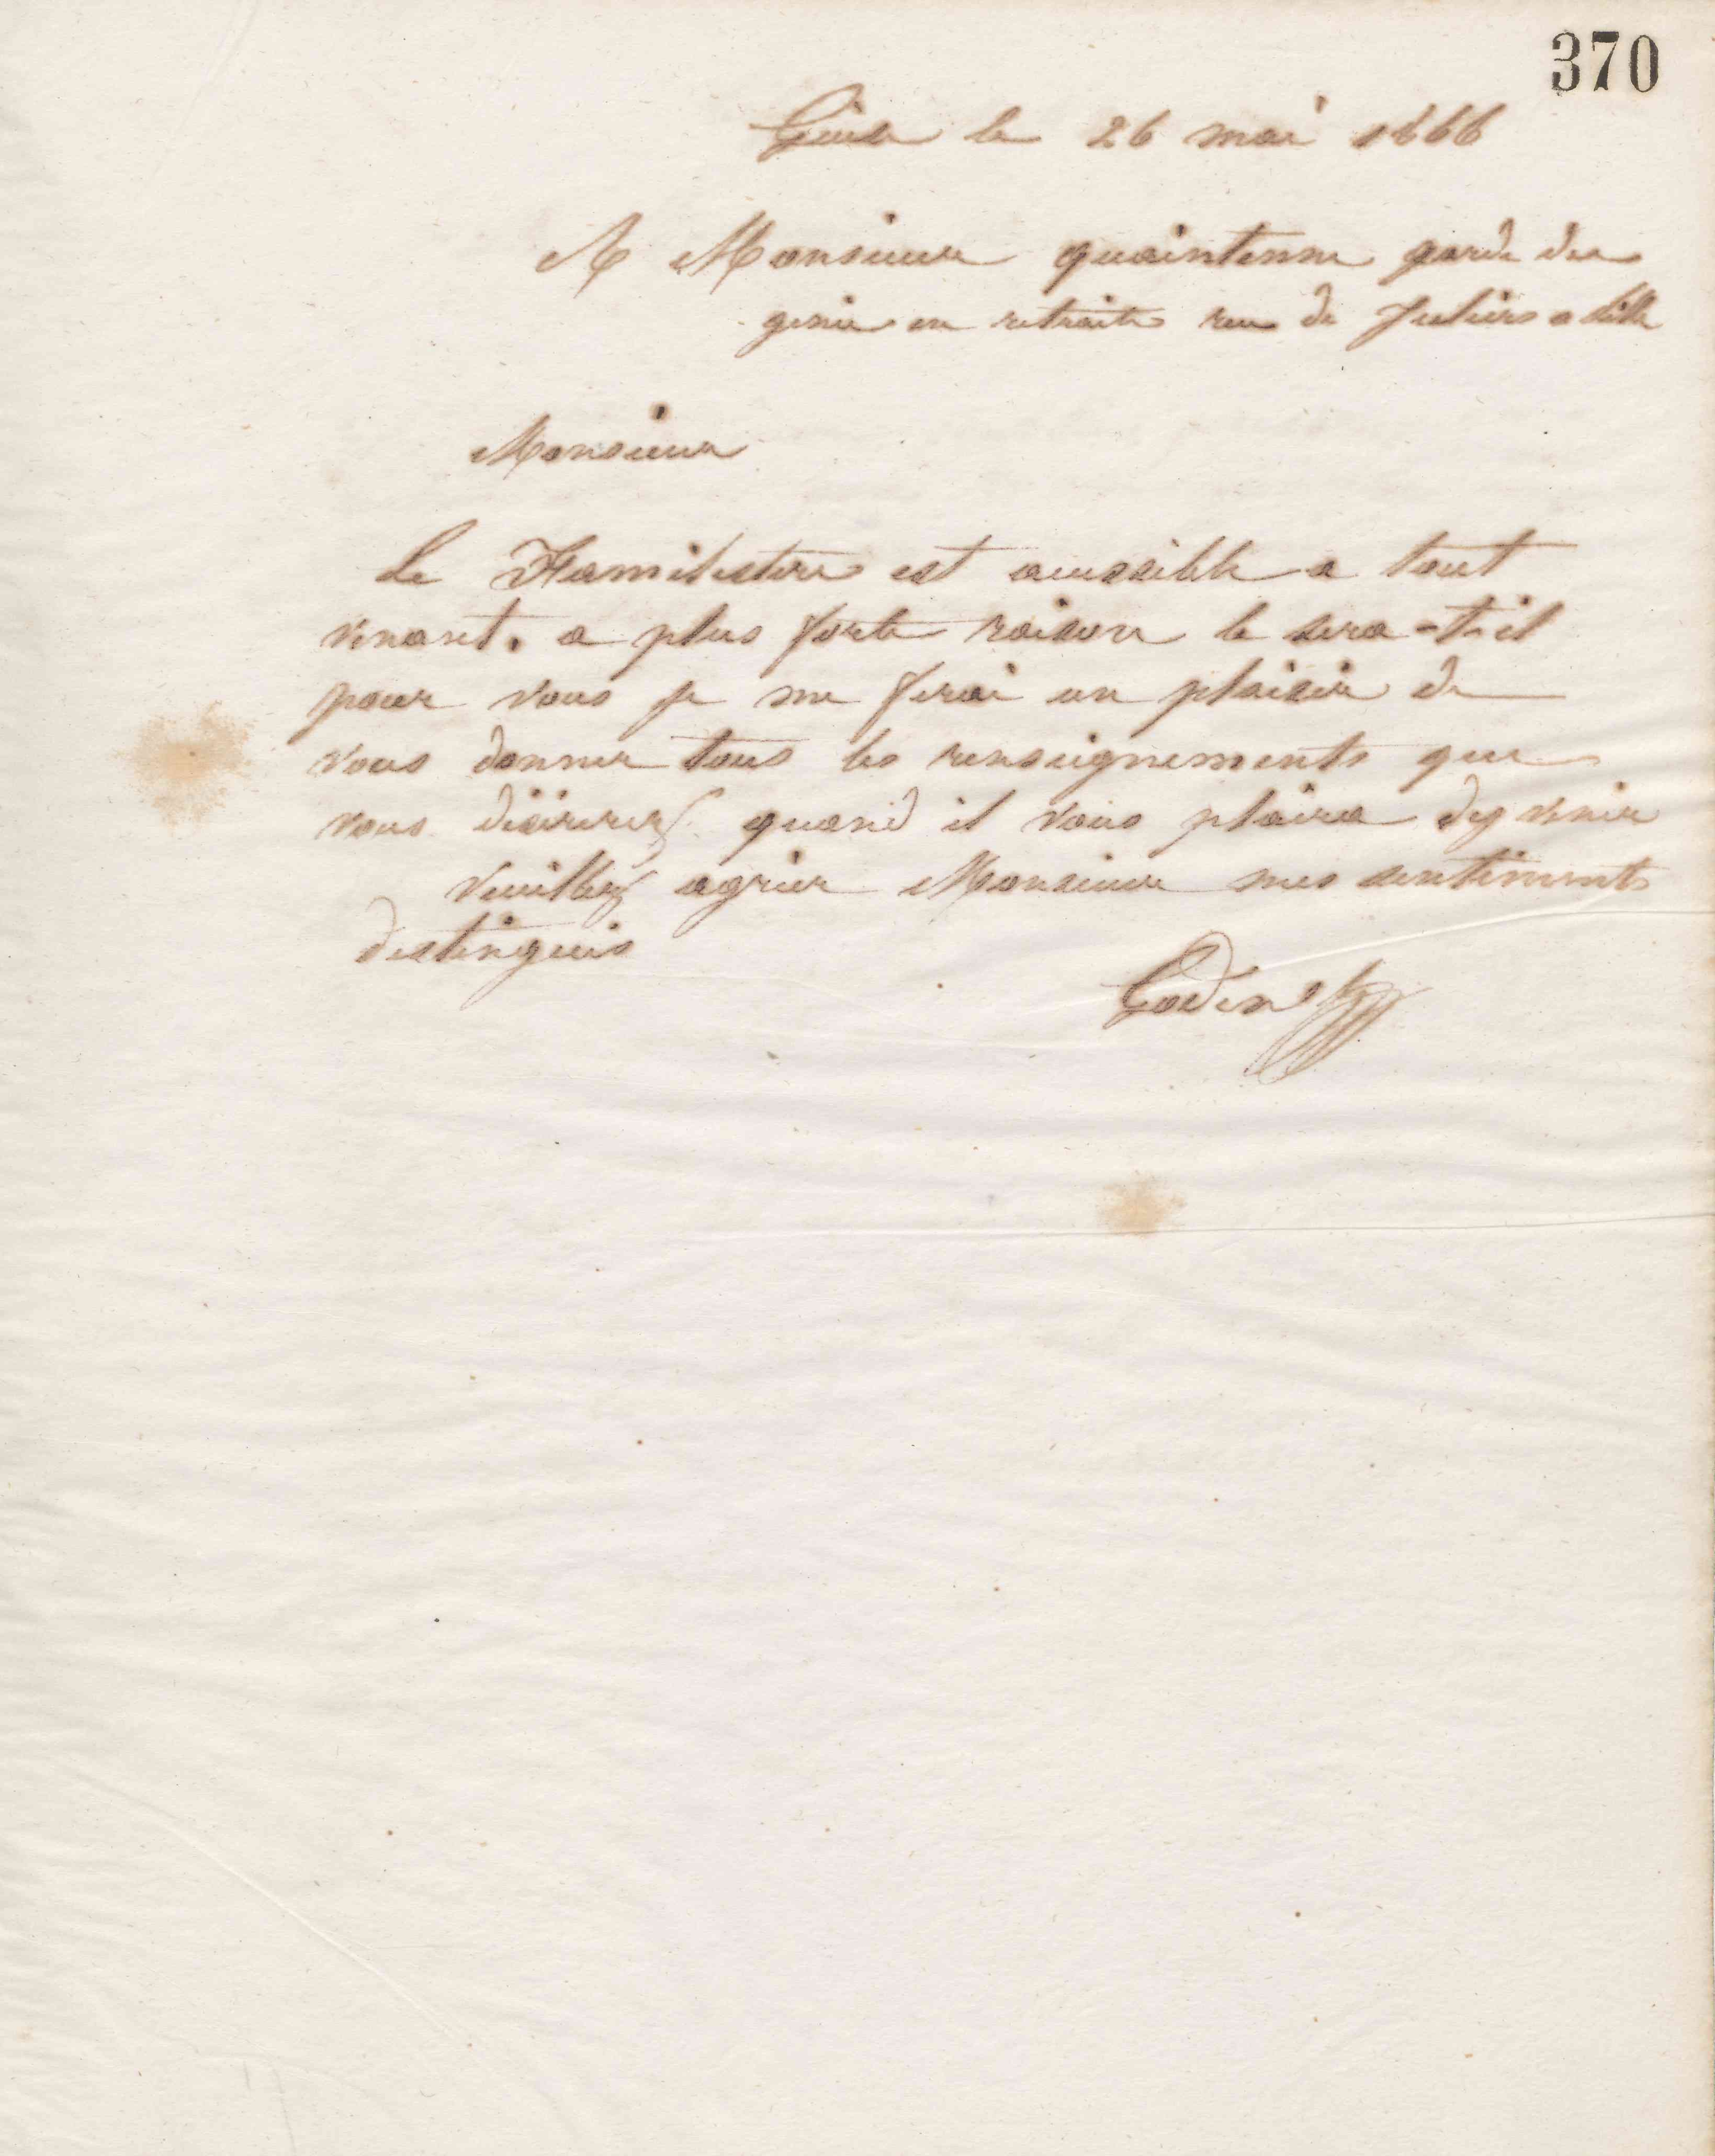 370
Guise le 26 mai 1866
A Monsieur quaintenne garde du
genie en retraite rue de Juliers a Lille
Monsieur
Le Familistere est accessible a tout
venant. a plus forte raison le sera-t-il
pour vous je me ferai un plaisir de
vous donner tous les renseignements que
vous désirerez quand il vous plaira d'y venir
Veuillez agréer Monsieur mes sentiments
distingués
Godin